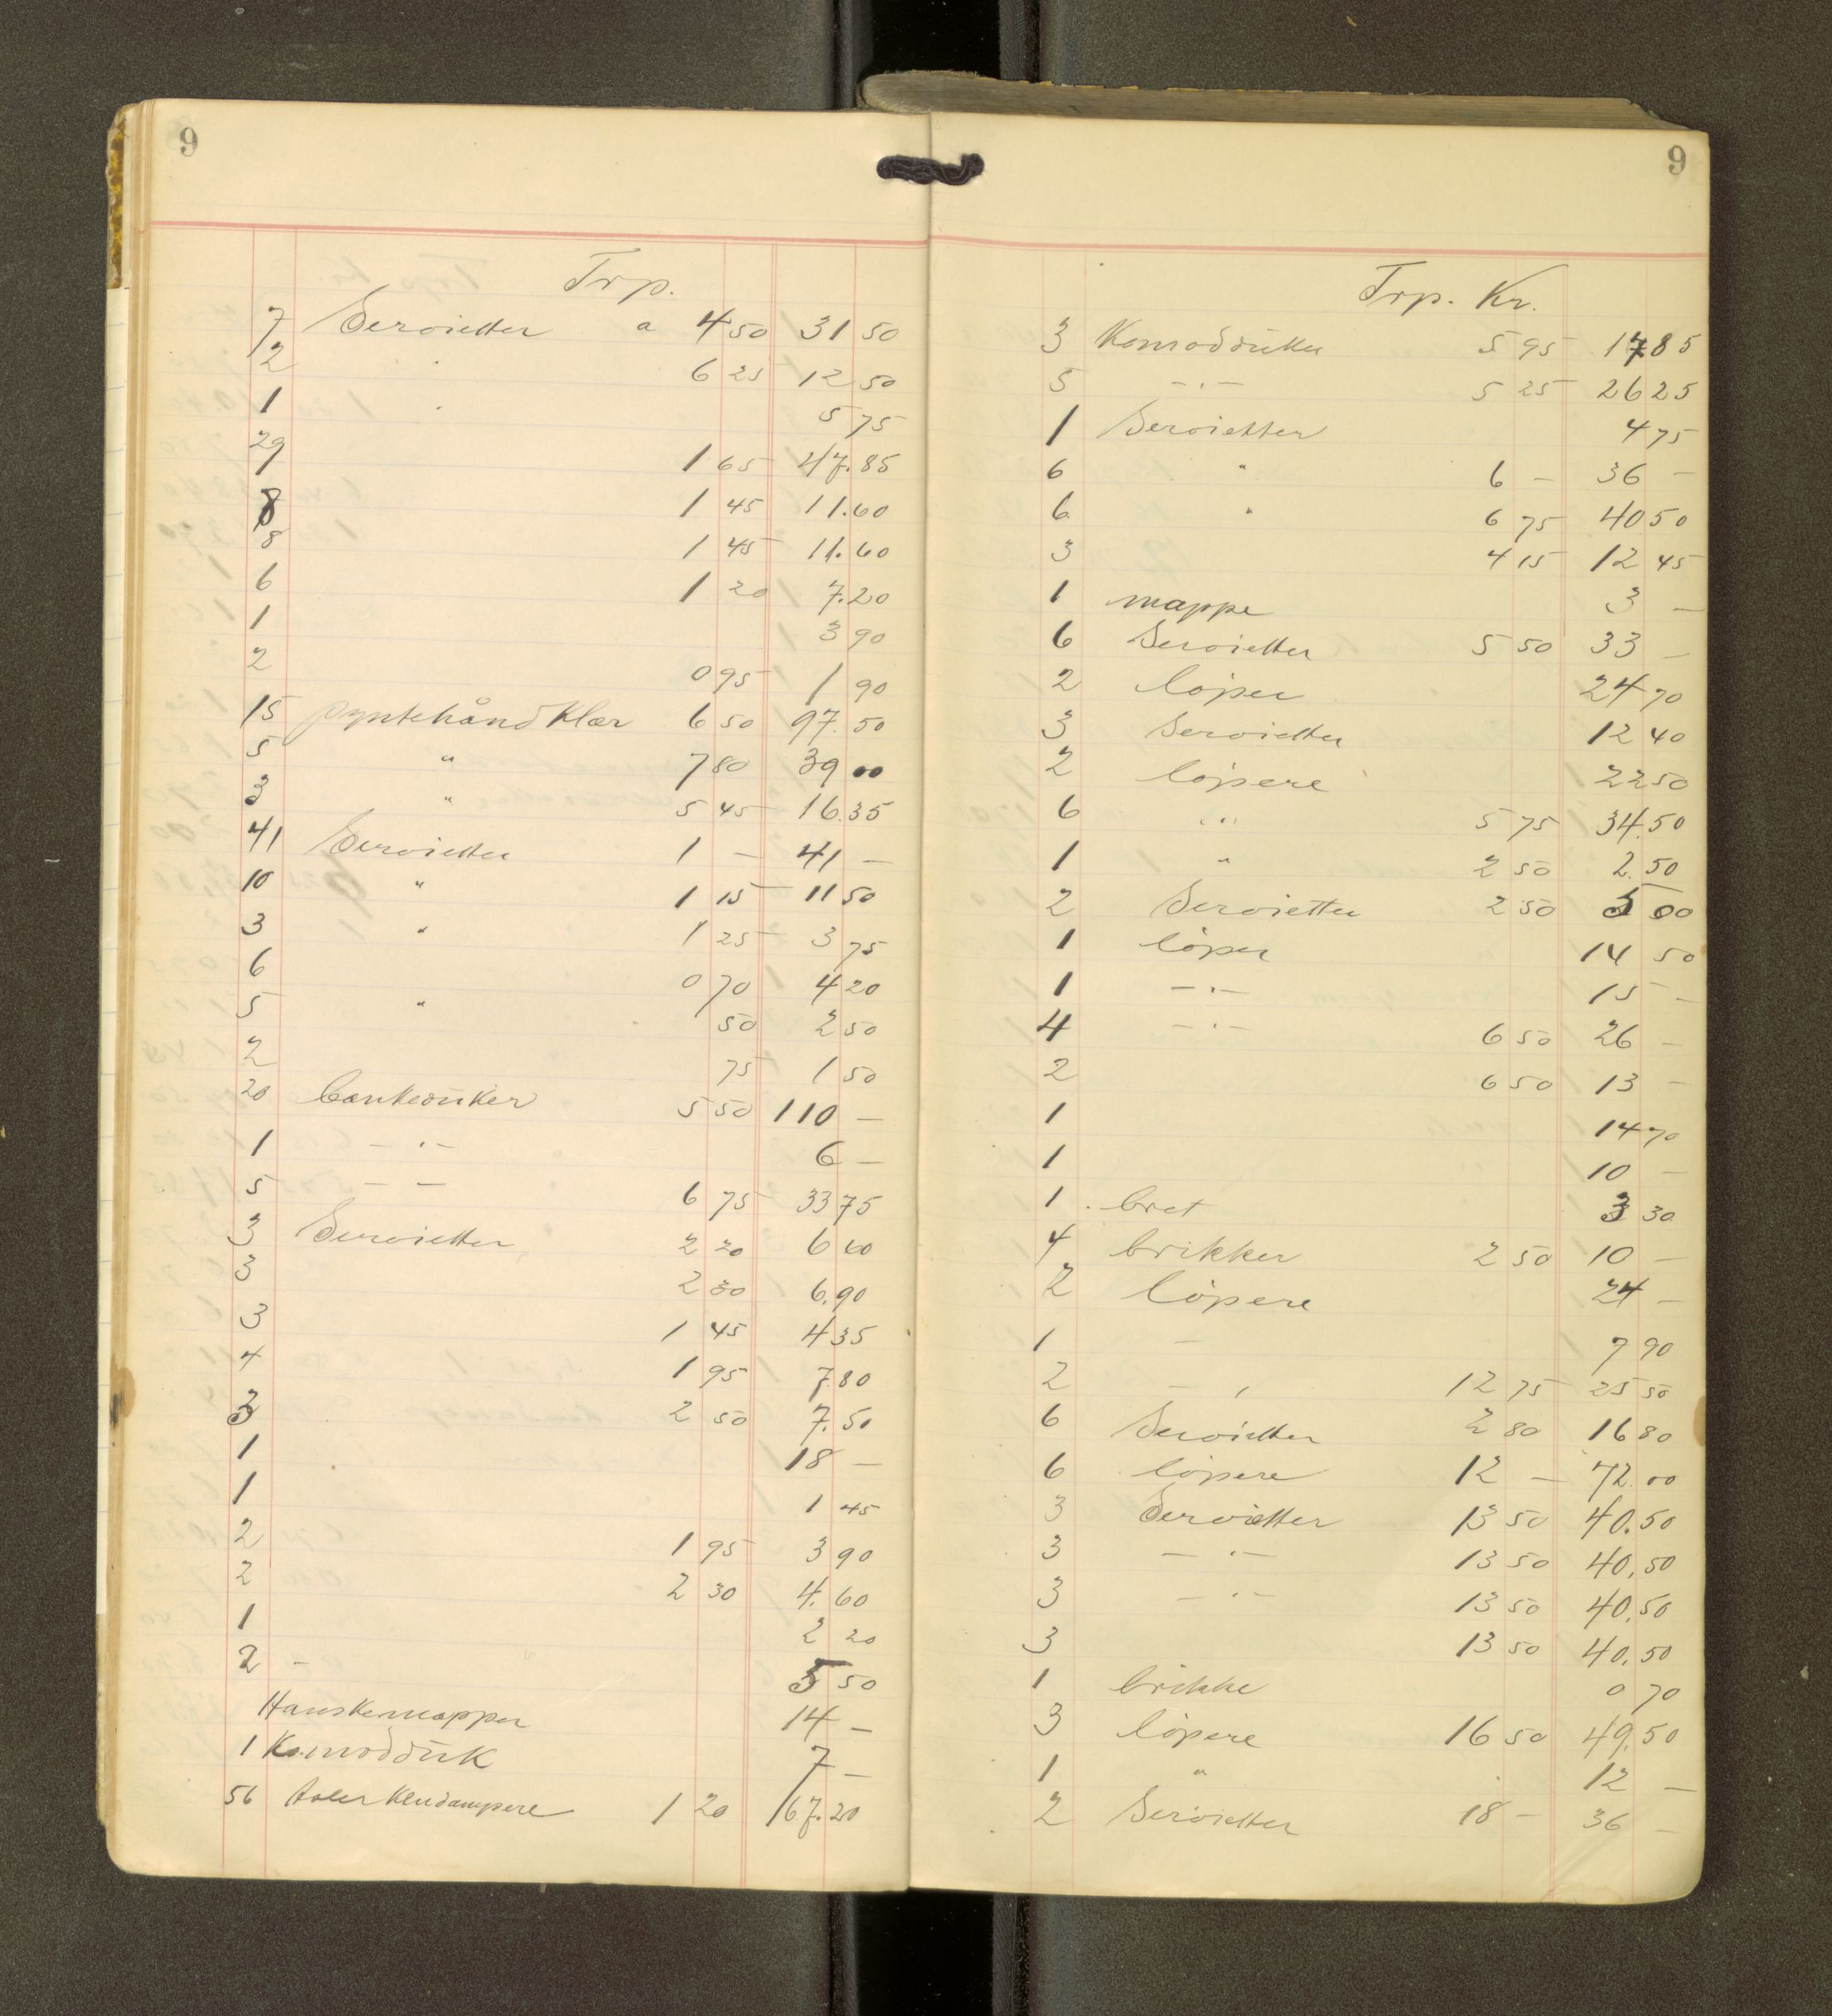 9
Trp.
7 Servietter a 4 50 31 50
2 " 6 25 12 50
1 " 5 75
29 1 65 47.85
8 1 45 11.60
8 1 45 11.60
6 1 20 7.20
1 3 90
2 0 95 1 90
15 pyntehåndklær 6 50 97.50
5 " 7 80 39 00
3 " 5 45 16.35
41 Servietter 1 — 41 —
10 " 1 15 11 50
3 " 1 25 3 75
6 0 70 4 20
5 " 50 2 50
2 75 1 50
20 5 50 110 —
1 — " — 6 —
5 — — 6 75 33 75
3 Servietter 2 20 6 60
3 2 30 6.90
3 1 45 4 35
4 1 95 7.80
3 2 50 7.50
1 18 —
1 1 45
2 1 95 3 90
2 2 30 4.60
1 2 20
2 - 5 50
Hanskemapper 14 —
1 Komoddük 7 —
56 1 20 67.20
9
Trp. Kr.
3 Komoddüker 5 95 17 85
5 — " — 5 25 26 25
1 Servietter 4 75
6 " 6 — 36 —
6 " 6 75 40 50
3 4 15 12 45
1 mappe 3 —
6 Servietter 5 50 33 —
2 löper 24 70
3 Servietter 12 40
2 löpere 22 50
6 " 5 75 34.50
1 " 2 50 2.50
2 Servietter 2 50 5 00
1 löper 14 50
1 — " — 15 —
4 — " — 6 50 26 —
2 6 50 13 —
1 14 70
1 10 —
1 bret 3 30
4 brikker 2 50 10 —
2 löpere 24 —
1 — 7 90
2 — " 12 75 25 50
6 Servietter 2 80 16 80
6 löpere 12 — 72.00
3 Servietter 13 50 40.50
3 — " — 13 50 40.50
3 — " — 13 50 40.50
3 13 50 40.50
1 brikke 0 70
3 löpere 16 50 49.50
1 " 12 —
2 Servietter 18 — 36 —